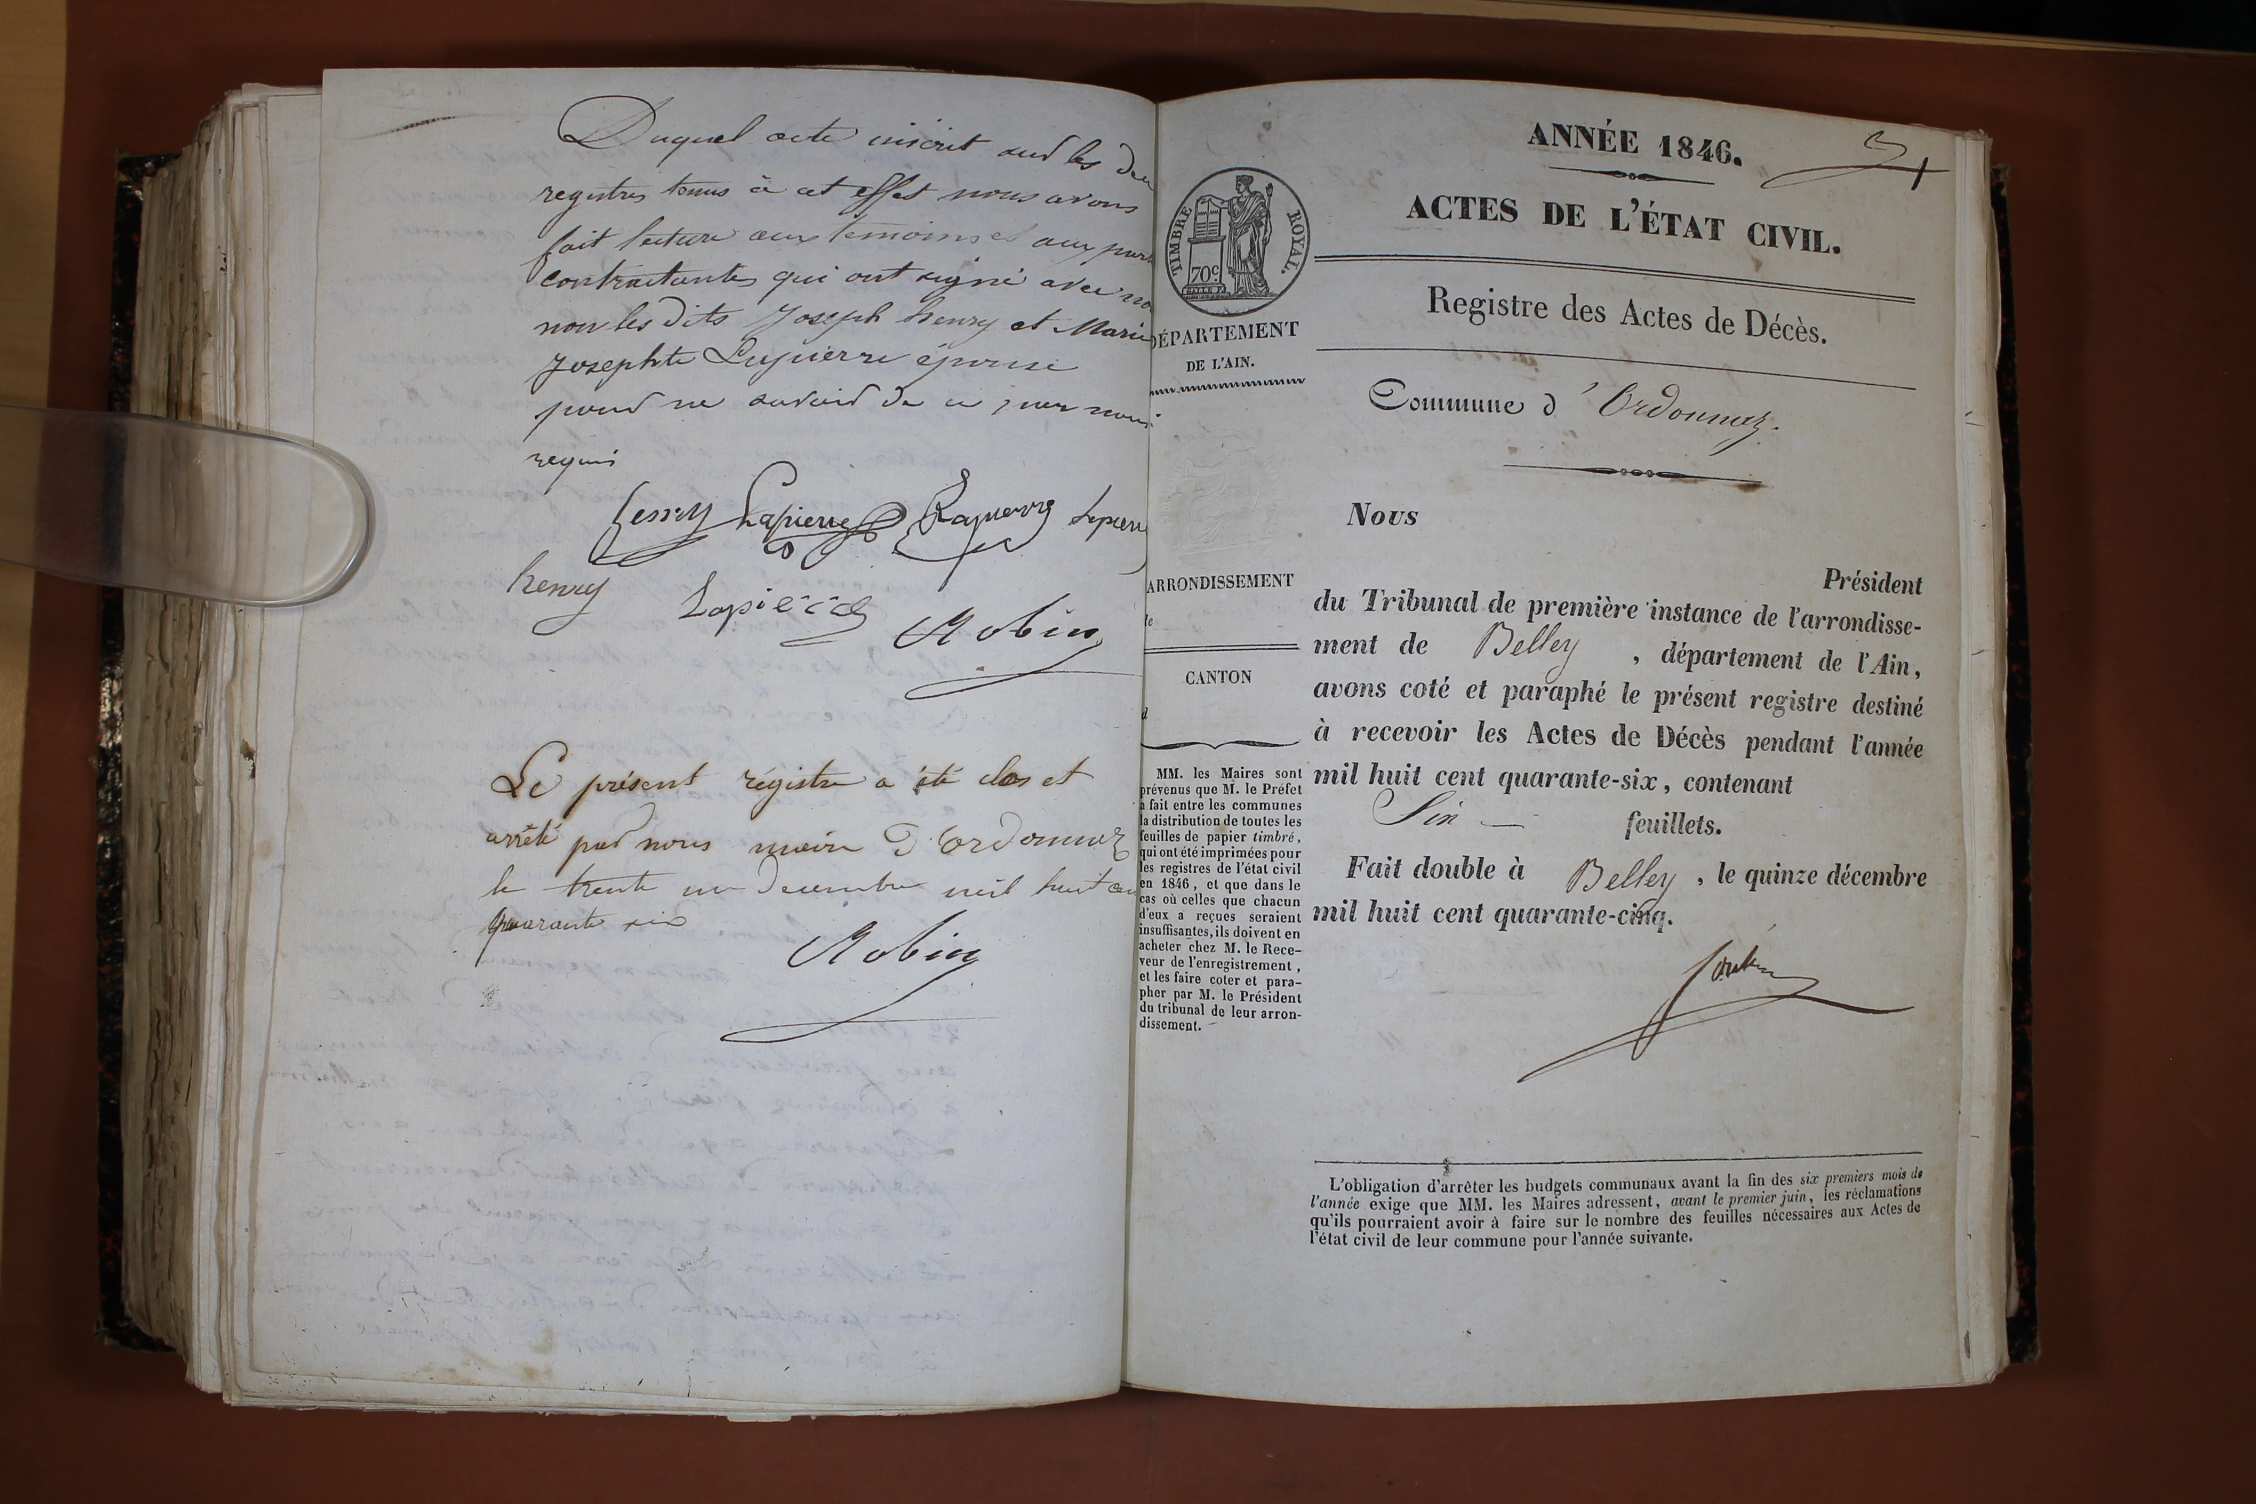 Duquel acte inscrit sur les deu
registres tenus à cet effet nous avons
fait lecture aux temoins et aux part
contractantes qui ont signé avec no
non les dits Joseph henry et Marie
Josephte Lapierre épouse
pour ne savoir de ce
requis
henry Lapierre Lapierre Lapierr
henry Lapierre Robin
Le présent régistre a été clos et
arrêté par nous maire d'Ordonnaz
le trente un decembre mil huit cen
quarante six
Robin
ANNÉE 1846.
ACTES DE L'ÉTAT CIVIL.
TIMBRE ROYAL.
70c
DÉPARTEMENT
DE L'AIN.
Registre des Actes de Décès.
Commune d'Ordonnaz.
Nous
Président
du Tribunal de première instance de l'arrondisse-
ment de Belley, département de l'Ain,
avons coté et paraphé le présent registre destiné
à recevoir les Actes de Décès pendant l'année
mil huit cent quarante-six, contenant
Six feuillets.
Fait double à Belley, le quinze décembre
mil huit cent quarante-cinq.
ARRONDISSEMENT
de
CANTON
d
MM. les Maires sont
prévenus que M. le Préfet
a fait entre les communes
la distribution de toutes les
feuilles de papier timbré,
qui ont été imprimées pour
les registres de l'état civil
en 1846, et que dans le
cas où celles que chacun
d'eux a reçues seraient
insuffisantes, ils doivent en
acheter chez M. le Rece-
veur de l'enregistrement,
et les faire coter et para-
pher par M. le Président
du tribunal de leur arron-
dissement.
L'obligation d'arrêter les budgets communaux avant la fin des six premiers mois de
l'année exige que MM. les Maires adressent, avant le premier juin, les réclamations
qu'ils pourraient avoir à faire sur le nombre des feuilles nécessaires aux Actes de
l'état civil de leur commune pour l'année suivante.